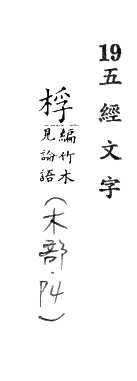 19五經文字
桴編竹木
見論語
(木部·P4)